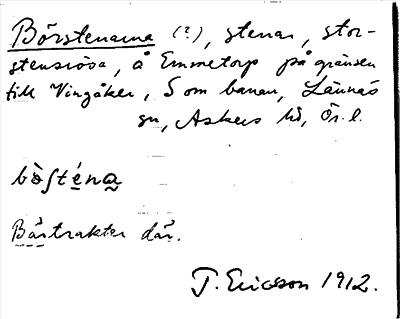 Börstenarna (?), stenar, stor-
stensrösa, å Emmetorp på gränsen
till Vingåker, S om banan, Lännäs
sn, Askers hd, Ör. l.
bö̀ſténa
Bärtrakter där.
T. Ericsson 1912.